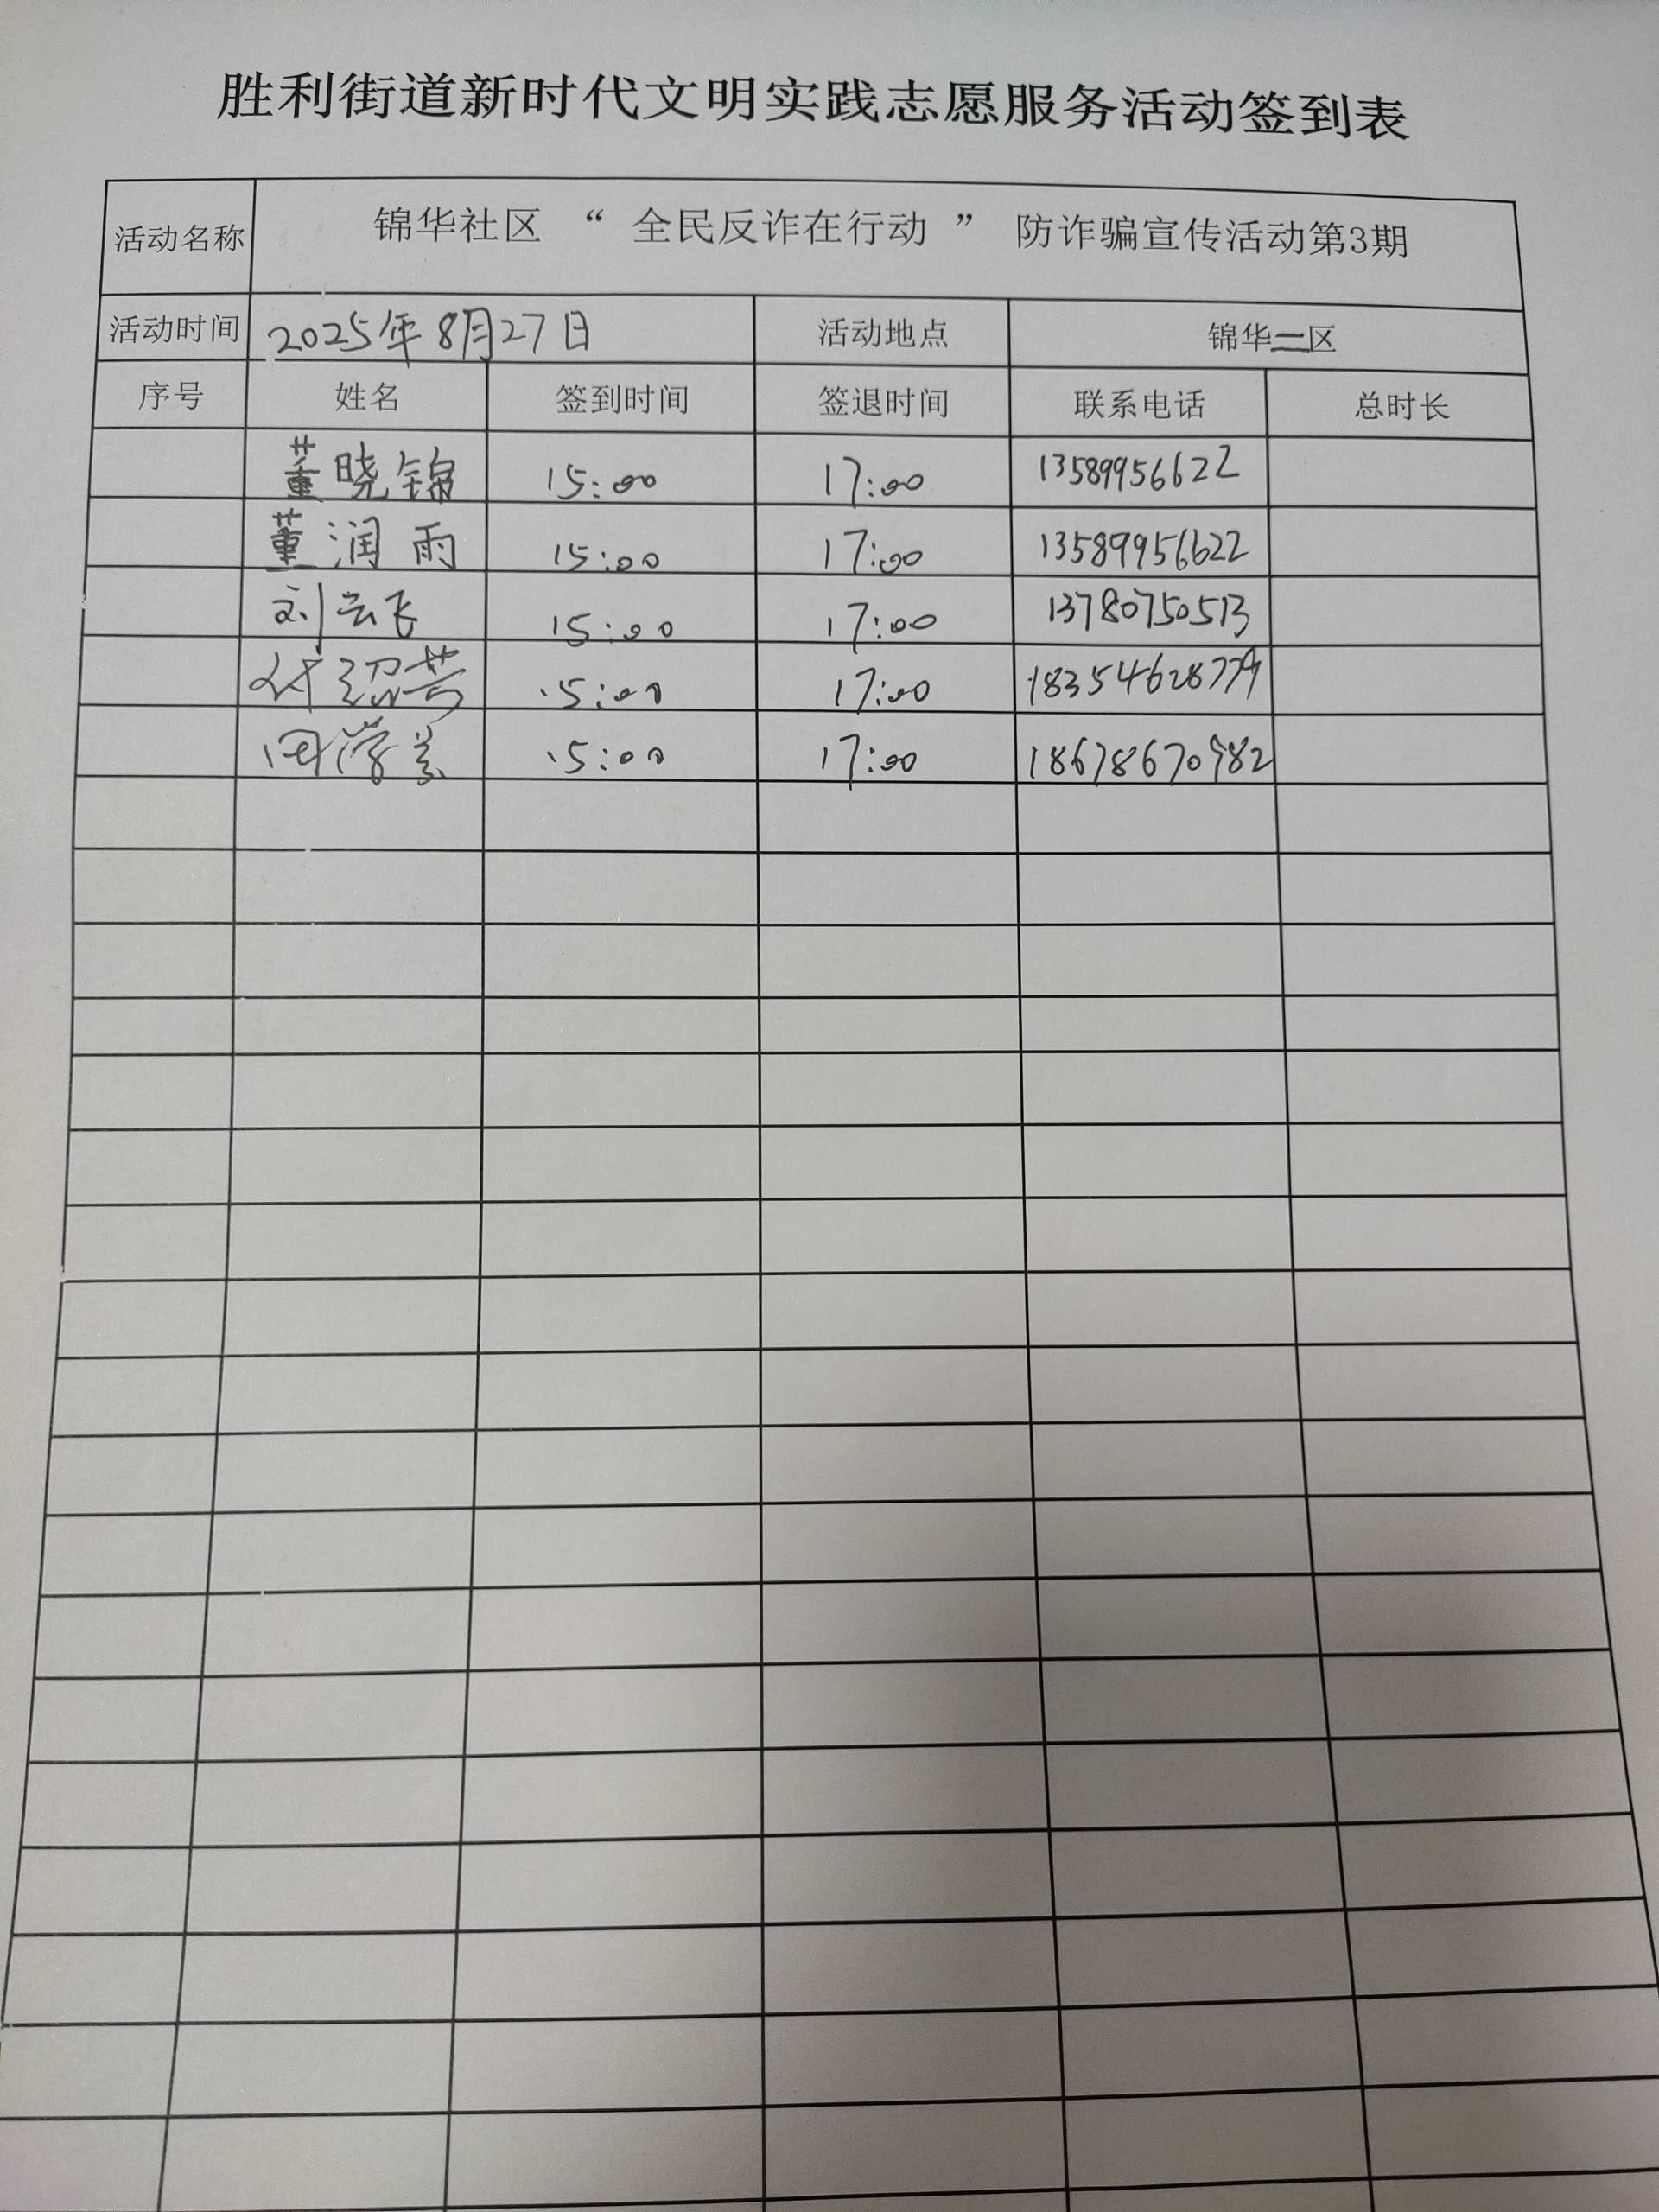 胜利街道新时代文明实践志愿服务活动签到表
活动名称 锦华社区 “ 全民反诈在行动 ” 防诈骗宣传活动第3期
活动时间 2025年8月27日 活动地点 锦华二区
序号 姓名 签到时间 签退时间 联系电话 总时长
董晓锦 15:00 17:00 13589956622
董润雨 15:00 17:00 13589956622
刘云飞 15:00 17:00 13780750513
15:00 17:00 18354628779
15:00 17:00 18678670982